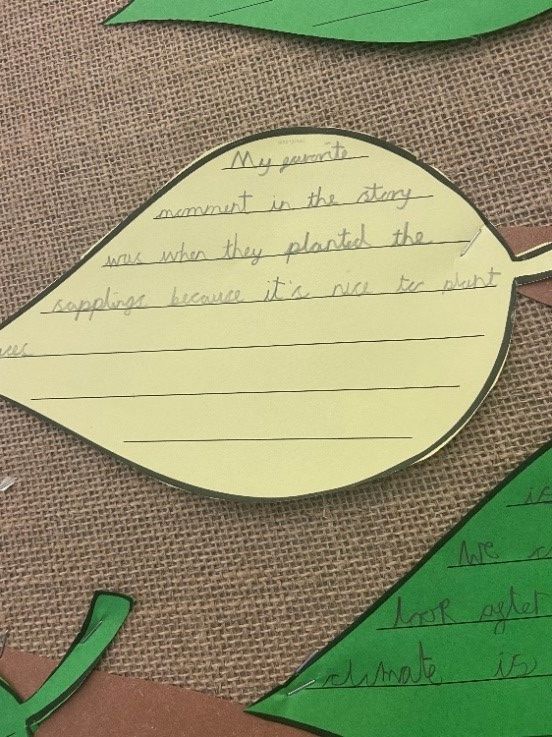 My favorite
momment in the story
was when they planted the
sapplings because it's nice to plant
We
look after
climate is